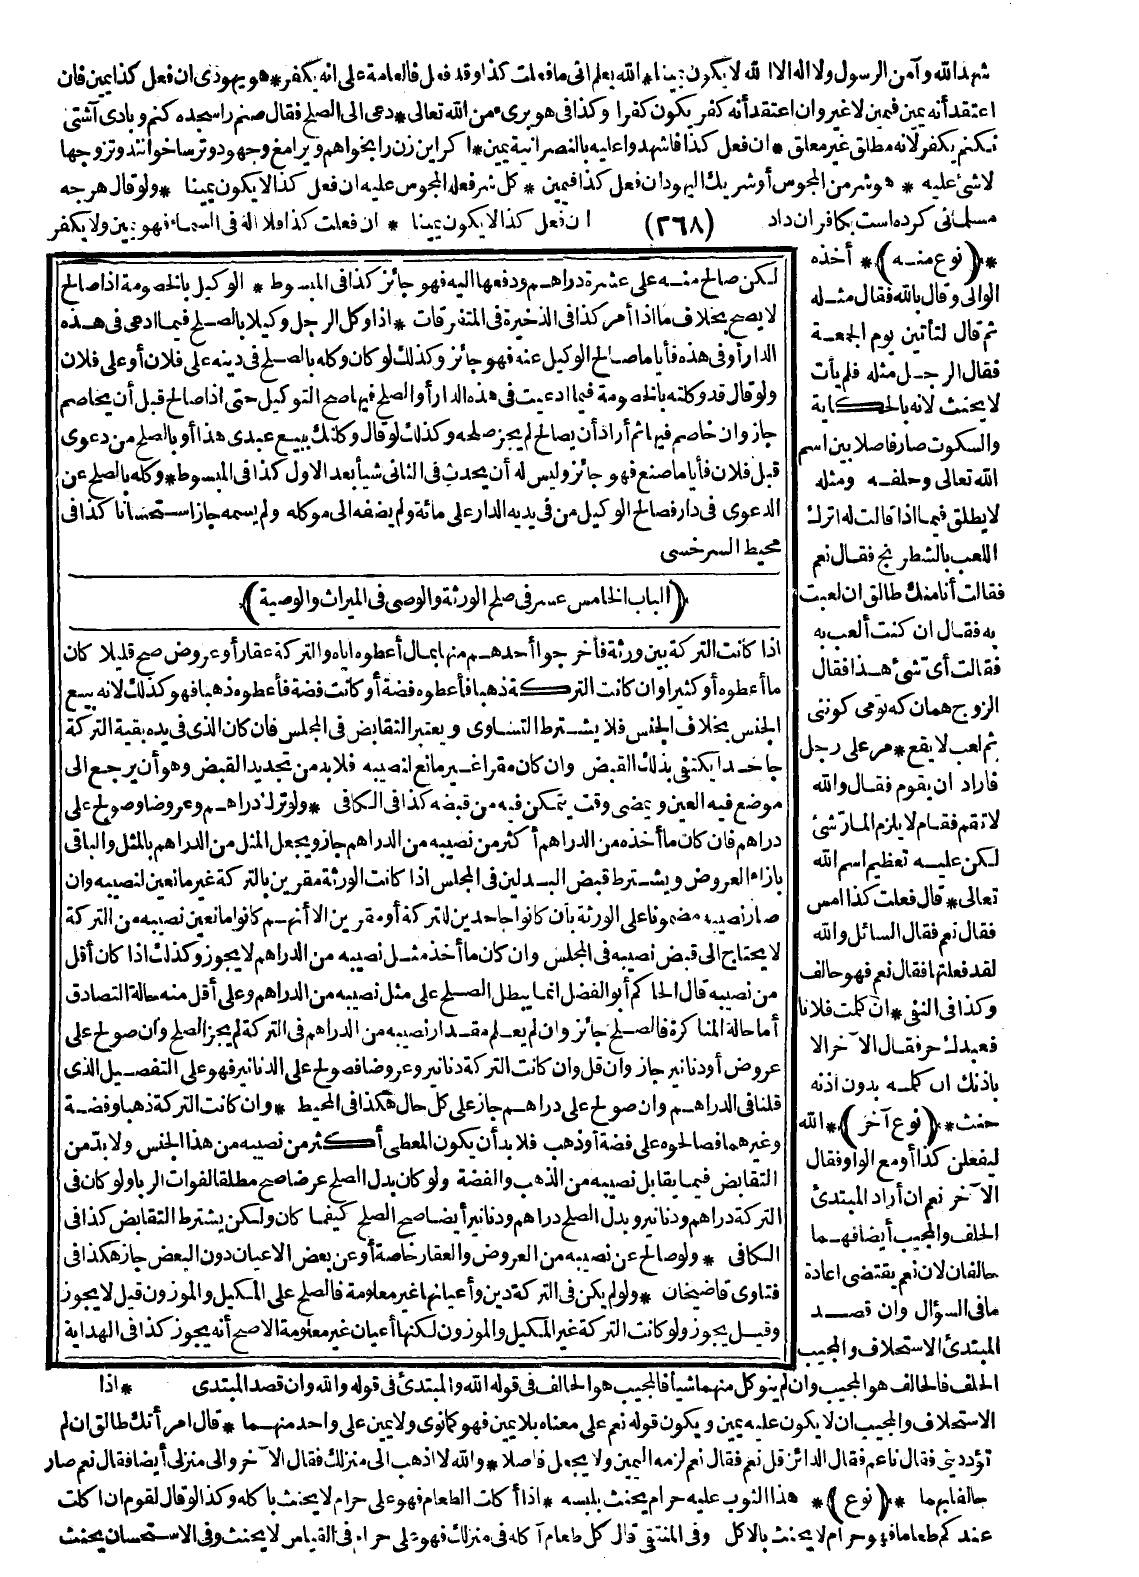 شهد الله وآمن الرسول ولا اله الا الله لا يكون يمينا * الله يعلم انى ما فعلت كذا وقد فعل فالعامة على انه يكفر * هو يهودى ان فعل كذا يمين فان
اعتقد أنه يمين فيمين لا غير وان اعتقد أنه كفر يكون كفرا وكذا فى هو برىء من الله تعالى * دعى الى الصلح فقال صنم را سجده كنم وبا وى آشتى
نكنم يكفر لانه مطلق غير معلق * ان فعل كذا فاشهدوا عليه بالنصرانية يمين * اكر اين زن را بخواهم ويرا مغ وجهود وترسا خوانند وتزوجها
لا شئ عليه * هو شر من المجوس أو شريك اليهود ان فعل كذا فيمين * كل شر فعله المجوس عليه ان فعل كذا لا يكون يمينا * ولو قال هرجه
مسلمانى كرده است بكافران داد ان فعل كذا لا يكون يمينا * ان فعلت كذا فلا اله فى السماء فهو يمين ولا يكفر
(٢٦٨)
* (نوع منه) * أخذه
الوالى وقال بالله فقال مثله
ثم قال لتأتين يوم الجمعة
فقال الرجل مثله فلم يأت
لا يحنث لانه بالحكاية
والسكوت صار فاصلا بين اسم
الله تعالى وحلفه ومثله
لا يطلق فيما اذا قالت له اترك
اللعب بالشطرنج فقال نعم
فقالت أنا منك طالق ان لعبت
به فقال ان كنت ألعب به
فقالت أى شئ هذا فقال
الزوج همان كه تو مى كونى
ثم لعب لا يقع * مر على رجل
فاراد ان يقوم فقال والله
لا تقم فقام لا يلزم المار شئ
لكن عليه تعظيم اسم الله
تعالى * قال فعلت كذا امس
فقال نعم فقال السائل والله
لقد فعلتها فقال نعم فهو حالف
وكذا فى النفى * ان كلمت فلانا
فعبدك حر فقال الآخر الا
باذنك ان كلمه بدون اذنه
حنث * (نوع آخر) * الله
ليفعلن كذا أو مع الواو فقال
الآخر نعم ان أراد المبتدئ
الحلف والمجيب أيضا فهما
حالفان لان نعم يقتضى اعادة
ما فى السؤال وان قصد
المبتدئ الاستحلاف والمجيب
لكن صالح منه على عشرة دراهم ودفعها اليه فهو جائز كذا فى المبسوط * الوكيل بالخصومة اذا صالح
لا يصح بخلاف ما اذا أمر كذا فى الذخيرة فى المتفرقات * اذا وكل الرجل وكيلا بالصلح فيما ادعى فى هذه
الدار أو فى هذه فأيا ما صالح الوكيل عنه فهو جائز وكذلك لو كان وكله بالصلح فى دينه على فلان أو على فلان
ولو قال قد وكلته بالخصومة فيما ادعيت فى هذه الدار أو الصلح فيها صح التوكيل حتى اذا صالح قبل أن يخاصم
جاز وان خاصم فيها ثم أراد أن يصالح لم يجز صلحه وكذلك لو قال وكلتك ببيع عبدى هذا أو بالصلح من دعوى
قبل فلان فأيا ما صنع فهو جائز وليس له أن يحدث فى الثانى شيأ بعد الاول كذا فى المبسوط * وكله بالصلح عن
الدعوى فى دار فصالح الوكيل من فى يديه الدار على مائة ولم يضفه الى موكله ولم يسمه جاز استحسانا كذا فى
محيط السرخسى
(الباب الخامس عشر فى صلح الورثة والوصى فى الميراث والوصية)
اذا كانت التركة بين ورثة فأخرجوا أحدهم منها بمال أعطوه اياه والتركة عقار أو عروض صح قليلا كان
ما أعطوه أو كثيرا وان كانت التركة ذهبا فأعطوه فضة أو كانت فضة فأعطوه ذهبا فهو كذلك لانه بيع
الجنس بخلاف الجنس فلا يشترط التساوى ويعتبر التقابض فى المجلس فان كان الذى فى يده بقية التركة
جاحدا يكتفى بذلك القبض وان كان مقرا غير مانع لنصيبه فلا بد من تجديد القبض وهو أن يرجع الى
موضع فيه العين ويمضى وقت يتمكن فيه من قبضه كذا فى الكافى * ولو ترك دراهم وعروضا وصولح على
دراهم فان كان ما أخذه من الدراهم أكثر من نصيبه من الدراهم جاز ويجعل المثل من الدراهم بالمثل والباقى
بازاء العروض ويشترط قبض البدلين فى المجلس اذا كانت الورثة مقرين بالتركة غير مانعين لنصيبه وان
صار نصيبه مضمونا على الورثة بأن كانوا جاحدين للتركة أو مقرين الا أنهم كانوا مانعين نصيبه من التركة
لا يحتاج الى قبض نصيبه فى المجلس وان كان ما أخذ مثل نصيبه من الدراهم لا يجوز وكذلك اذا كان أقل
من نصيبه قال الحاكم أبو الفضل انما يبطل الصلح على مثل نصيبه من الدراهم وعلى أقل منه حالة التصادق
أما حالة المناكرة فالصلح جائز وان لم يعلم مقدار نصيبه من الدراهم فى التركة لم يجز الصلح وان صولح على
عروض أو دنانير جاز وان قل وان كانت التركة دنانير وعروضا فصولح على الدنانير فهو على التفصيل الذى
قلنا فى الدراهم وان صولح على دراهم جاز على كل حال هكذا فى المحيط * وان كانت التركة ذهبا وفضة
وغيرهما فصالحوه على فضة أو ذهب فلا بد أن يكون المعطى أكثر من نصيبه من هذا الجنس ولا بد من
التقابض فيما يقابل نصيبه من الذهب والفضة ولو كان بدل الصلح عرضا صح مطلقا لفوات الربا ولو كان فى
التركة دراهم ودنانير وبدل الصلح دراهم ودنانير أيضا صح الصلح كيفما كان ولكن يشترط التقابض كذا فى
الكافى * ولو صالح عن نصيبه من العروض والعقار خاصة أو عن بعض الاعيان دون البعض جاز هكذا فى
فتاوى قاضيخان * ولو لم يكن فى التركة دين وأعيانها غير معلومة فالصلح على المكيل والموزون قيل لا يجوز
وقيل يجوز ولو كانت التركة غير المكيل والموزون لكنها أعيان غير معلومة الاصح أنه يجوز كذا فى الهداية
* اذا
الحلف فالحالف هو المجيب وان لم ينو كل منهما شيأ فالمجيب هو الحالف فى قوله الله والمبتدئ فى قوله والله وان قصد المبتدى
الاستحلاف والمجيب ان لا يكون عليه يمين ويكون قوله نعم على معناه بلا يمين فهو كما نوى ولا يمين على واحد منهما * قال امرأتك طالق ان لم
تؤد دينى فقال ناعم فقال الدائن قل نعم فقال نعم لزمه اليمين ولا يجعل فاصلا * والله لا اذهب الى منزلك فقال الآخر والى منزلى أيضا فقال نعم صار
حالفا بهما * (نوع) * هذا الثوب عليه حرام يحنث بلبسه * اذا أكلت الطعام فهو على حرام لا يحنث بأكله وكذا لو قال لقوم ان اكلت
عندكم طعاما فهو حرام لا يحنث بالاكل وفى المنتقى قال كل طعام آكله فى منزلك فهو على حرام فى القياس لا يحنث وفى الاستحسان يحنث